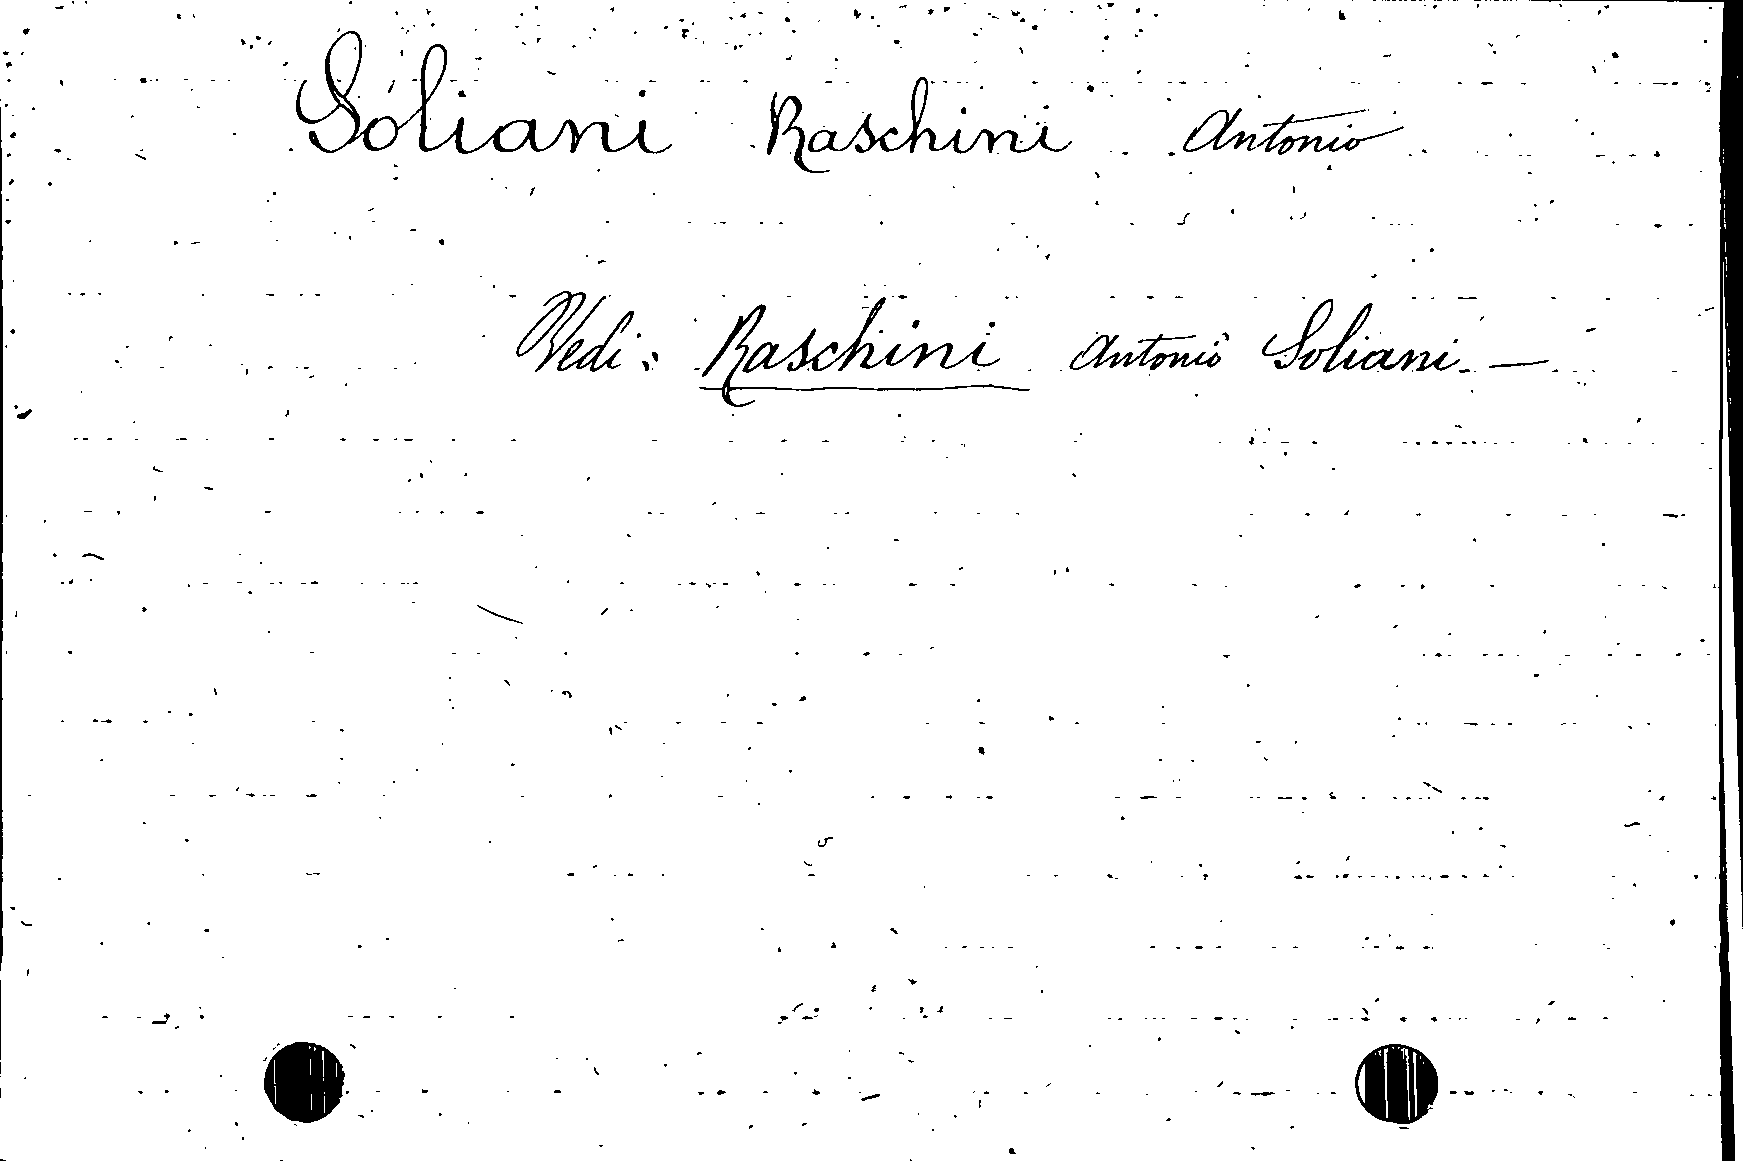 Soliani Raschini Antonio
Vedi: Raschini Antonio Soliani —